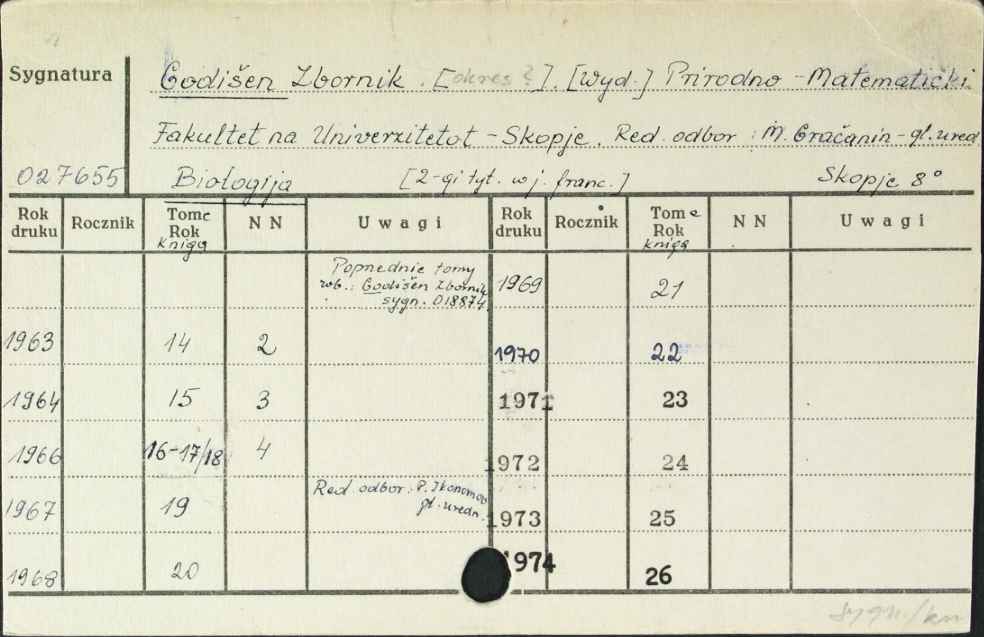 Sygnatura
Godišen Zbornik. [okres?]. [wyd.] Prirodno-Matematički
Fakultet na Univerzitetot - Skopje. Red. odbor: M. Gračanin - gl. ured.
027655 Biologija [2-gi tyt. w j. franc.] Skopje 8°
Rok druku Rocznik Tome Rok kniga NN Uwagi Rok druku Rocznik Tome Rok kniga NN Uwagi
Poprzednie tomy
wb.: Godišen Zbornik
sygn. 018874
1969 21
1963 14 2 1970 22
1964 15 3 1971 23
1966 16-17/18 4 1972 24
1967 19 Red. odbor: P. Ikonomov
gl. uredn. 1973 25
1968 20 1974 26
sygn./km